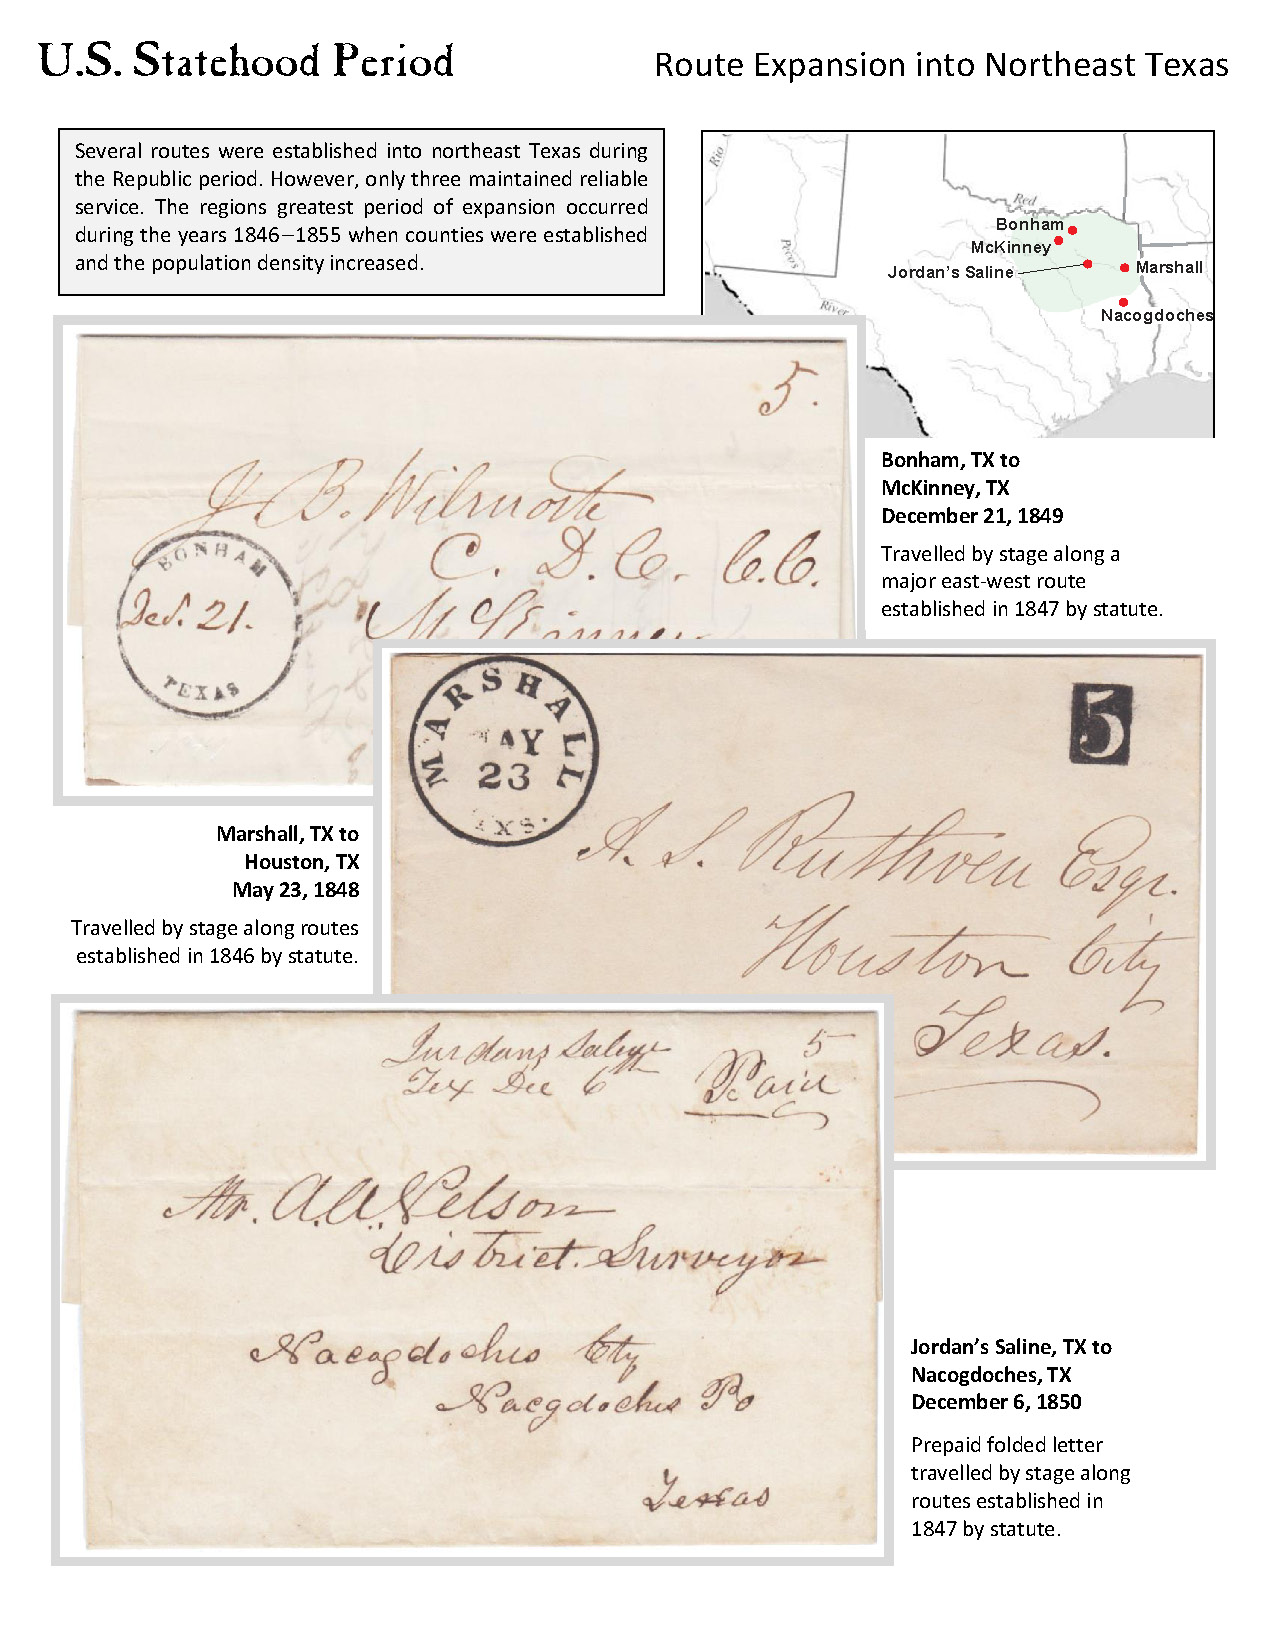 U.S. Statehood Period
Route Expansion into Northeast Texas
Several routes were established into northeast Texas during
the Republic period. However, only three maintained reliable
service. The regions greatest period of expansion occurred
during the years 1846–1855 when counties were established
and the population density increased.
Rio
Pecos
River
Red
Bonham
McKinney
Jordan's Saline
Marshall
Nacogdoches
5.
J. B. Wilmoth
C. D. C. C.C.
McKinney
BONHAM
Dec. 21.
TEXAS
Bonham, TX to
McKinney, TX
December 21, 1849
Travelled by stage along a
major east-west route
established in 1847 by statute.
MARSHALL
MAY
23
TXS.
5
A. S. Ruthven Esqr.
Houston City
Texas.
Marshall, TX to
Houston, TX
May 23, 1848
Travelled by stage along routes
established in 1846 by statute.
Jordans Saline
Tex Dec 6
5
Paid
Mr. A.A. Nelson
District. Surveyor
Nacogdoches City
Nacgdoches Po
Texas
Jordan's Saline, TX to
Nacogdoches, TX
December 6, 1850
Prepaid folded letter
travelled by stage along
routes established in
1847 by statute.